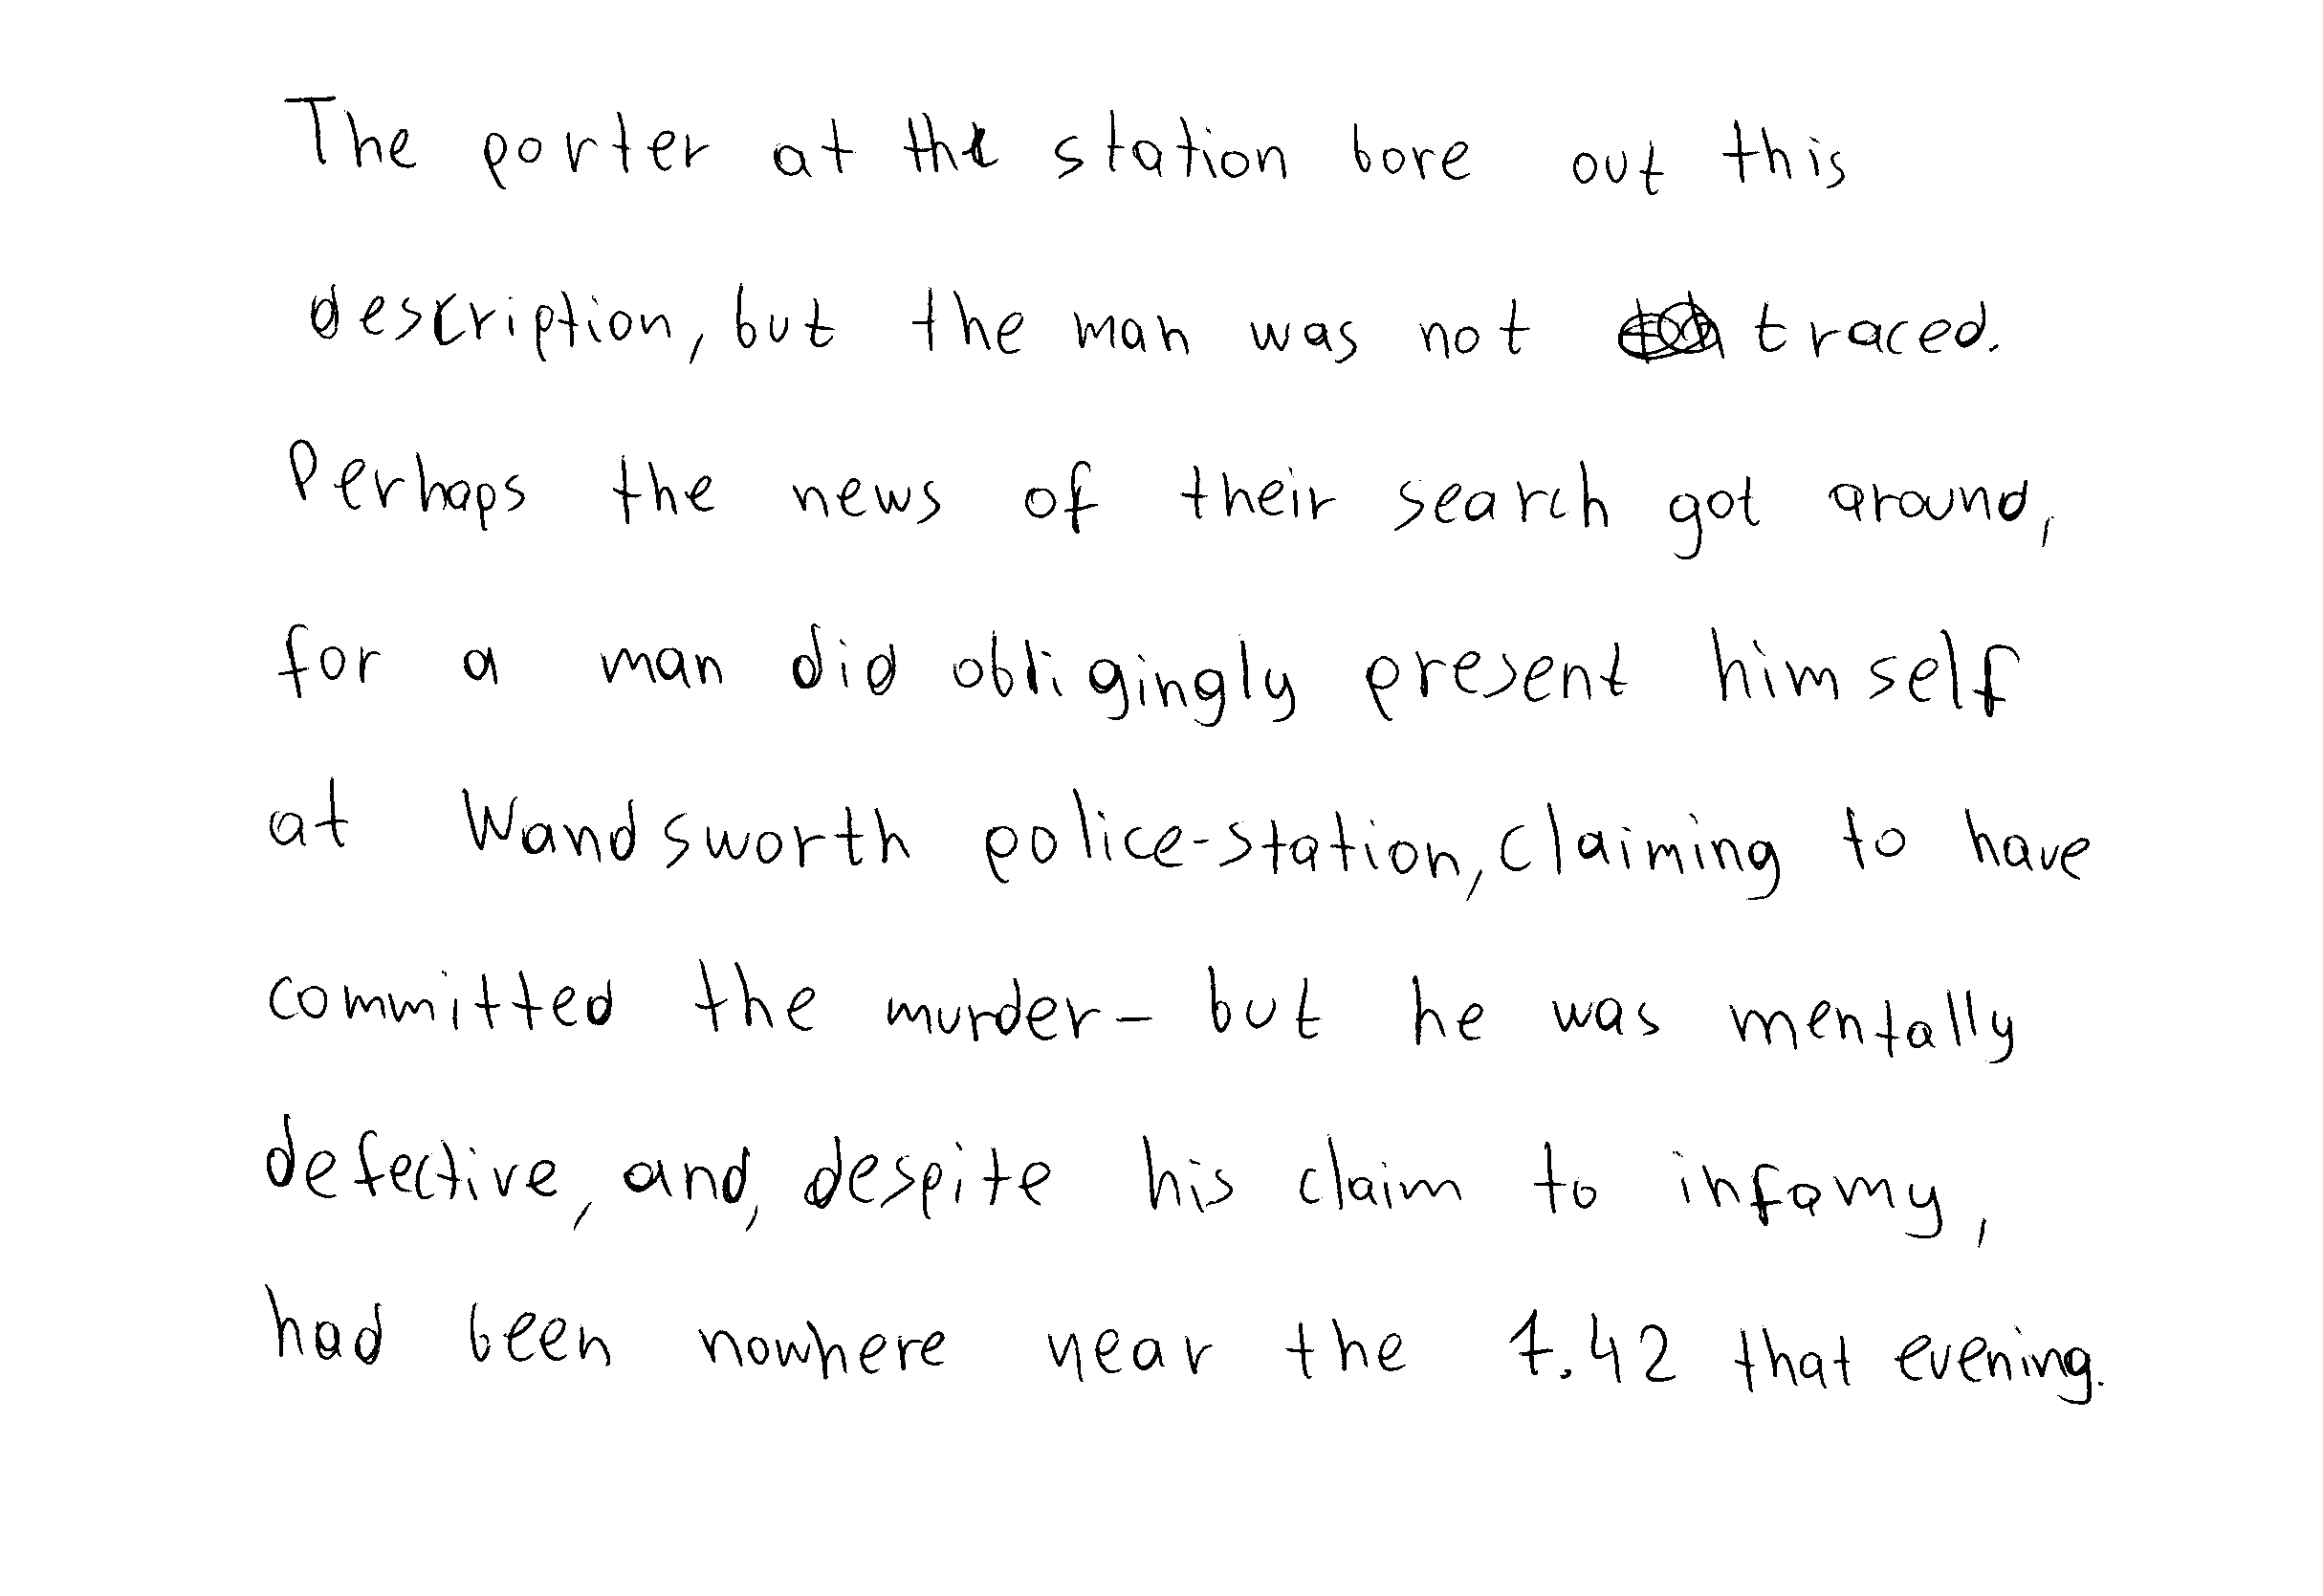 The porter at the station bore out this
description, but the man was not traced.
Perhaps the news of their search got around,
for a man did obligingly present himself
at Wandsworth police-station, claiming to have
committed the murder - but he was mentally
defective, and, despite his claim to infamy,
had been nowhere near the 7.42 that evening.